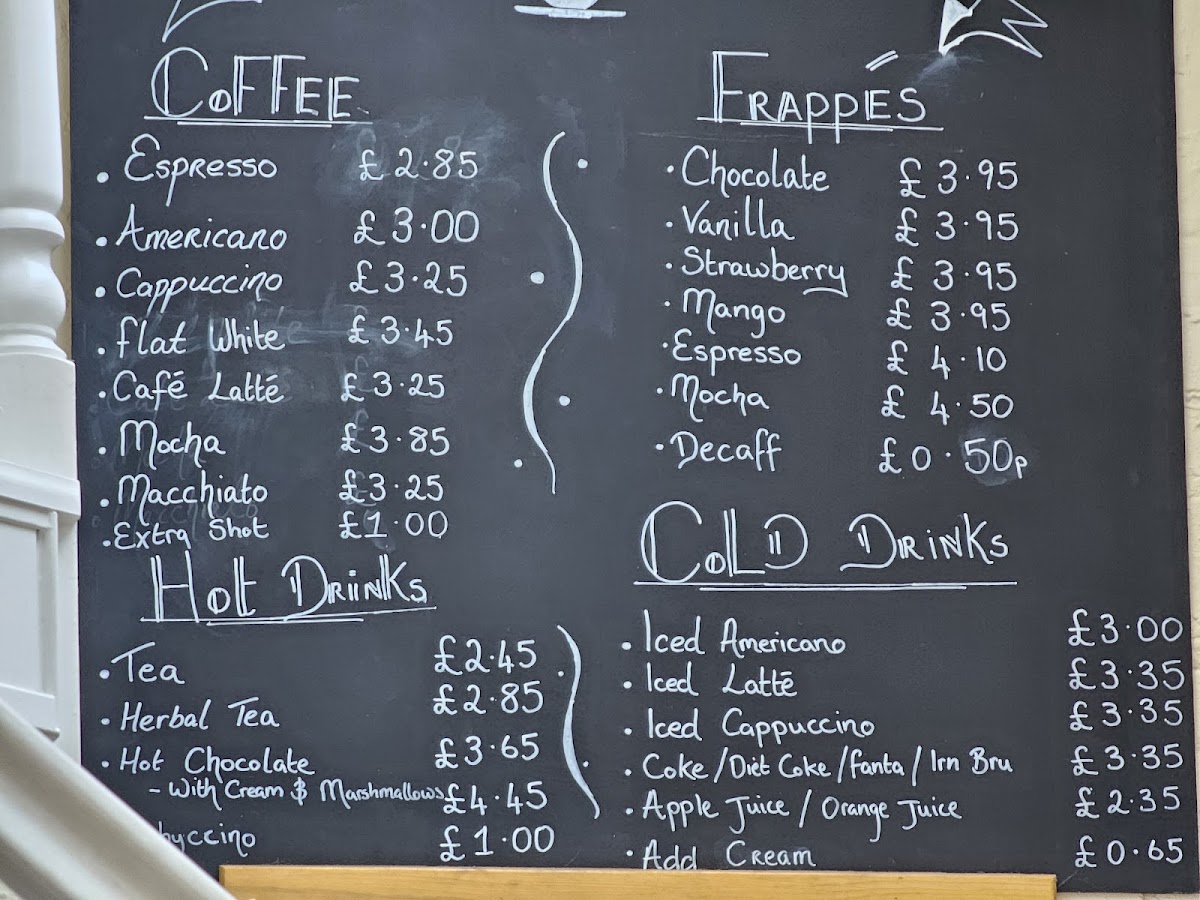 COFFEE
• Espresso £2.85
• Americano £3.00
• Cappuccino £3.25
• Flat White £3.45
• Café Latté £3.25
• Mocha £3.85
• Macchiato £3.25
• Extra Shot £1.00
Hot Drinks
• Tea £2.45
• Herbal Tea £2.85
• Hot Chocolate £3.65
- With Cream & Marshmallows £4.45
£1.00
FRAPPÉS
• Chocolate £3.95
• Vanilla £3.95
• Strawberry £3.95
• Mango £3.95
• Espresso £4.10
• Mocha £4.50
• Decaff £0.50p
COLD DRINKS
• Iced Americano £3.00
• Iced Latté £3.35
• Iced Cappuccino £3.35
• Coke/Diet Coke/Fanta/Irn Bru £3.35
• Apple Juice / Orange Juice £2.35
• Add Cream £0.65